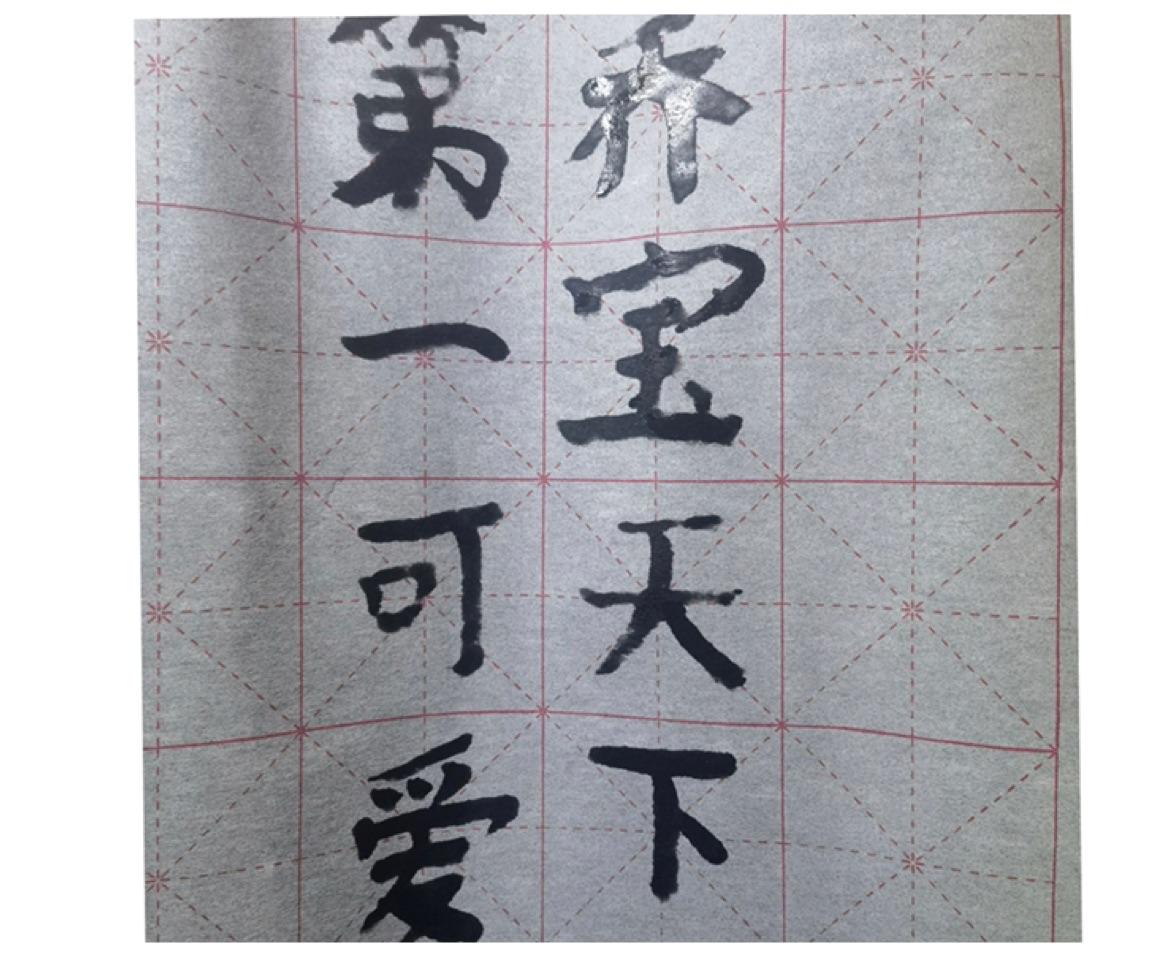 乔宝天下
第一可爱